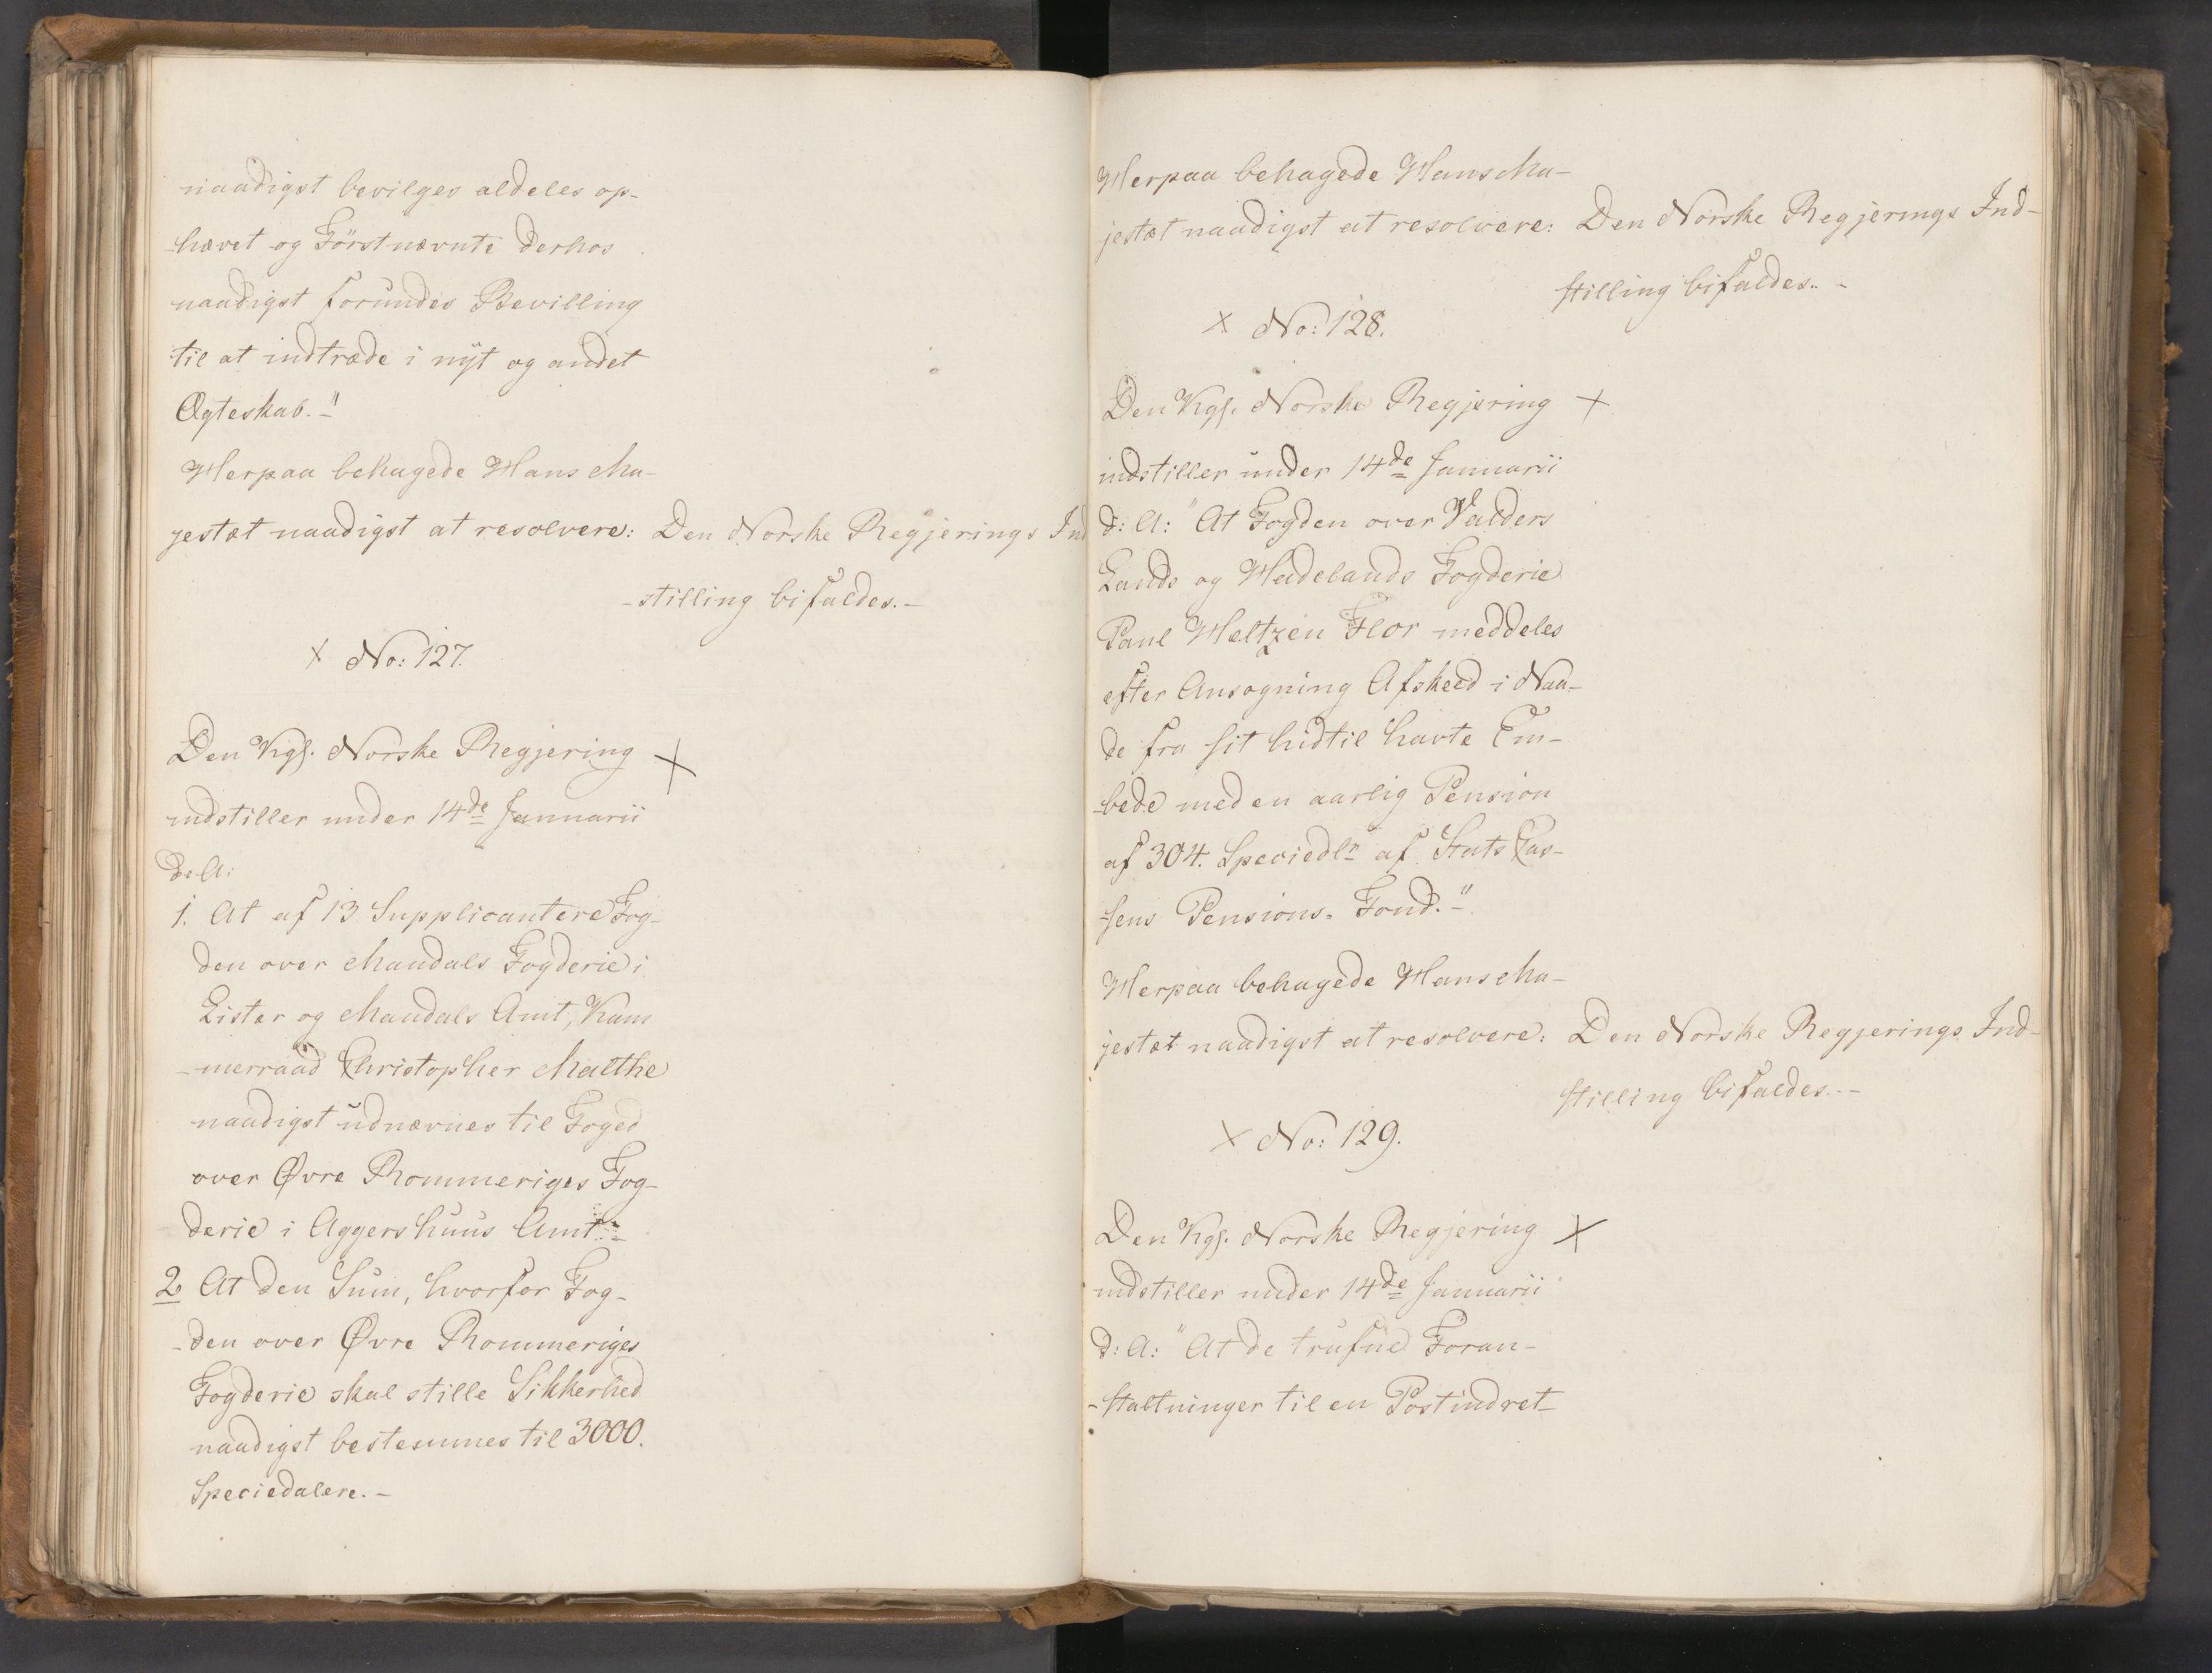 naadigst bevilges aldeles op-
-hævet og Förstnævnte derhos
naadigst forundes Bevilling
til at indtræde i nÿt og andet
Ægteskab."-
Herpaa behagede Hans Ma-
jestæt naadigst at resolvere: Den Norske Regjerings Ind
-stilling bifaldes.-
X No: 127.
Den Kgl. Norske Regjering X
indstiller under 14de Januarii
d. A:
1. At af 13 Supplicantere Fog-
den over Mandals Fogderie i
Lister og Mandals Amt, Kam
-merraad Christopher Malthe
naadigst udnævnes til Foged
over Øvre Rommeriges Fog-
derie i Aggershuus Amt.-
2 At den Sum, hvorfor Fog-
-den over Øvre Rommeriges
Fogderie skal stille Sikkerhed
naadigst bestemmes til 3000.
Speciedalere.-
Herpaa behagede Hans Ma-
jestæt naadigst at resolvere: Den Norske Regjerings Ind-
stilling bifaldes..-
X No: 128.
Den Kgl. Norske Regjering X
indstiller under 14de Januarii
d: A: "At Fogden over Valders
Lands og Hadelands Fogderie
Paul Heltzen Flor meddeles
efter Ansøgning Afskeed i Naa-
de fra sit hidtil havte Em-
-bede med en aarlig Pension
af 304. Speciedlr af Stats Cas-
-sens Pensions-Fond."-
Herpaa behagede Hans Ma-
jestæt naadigst at resolvere: Den Norske Regjerings Ind-
stilling bifaldes.-
X No: 129.
Den Kgl. Norske Regjering X
indstiller under 14de Januarii
d: A: "At de trufne Foran-
-staltninger til en Postindret-